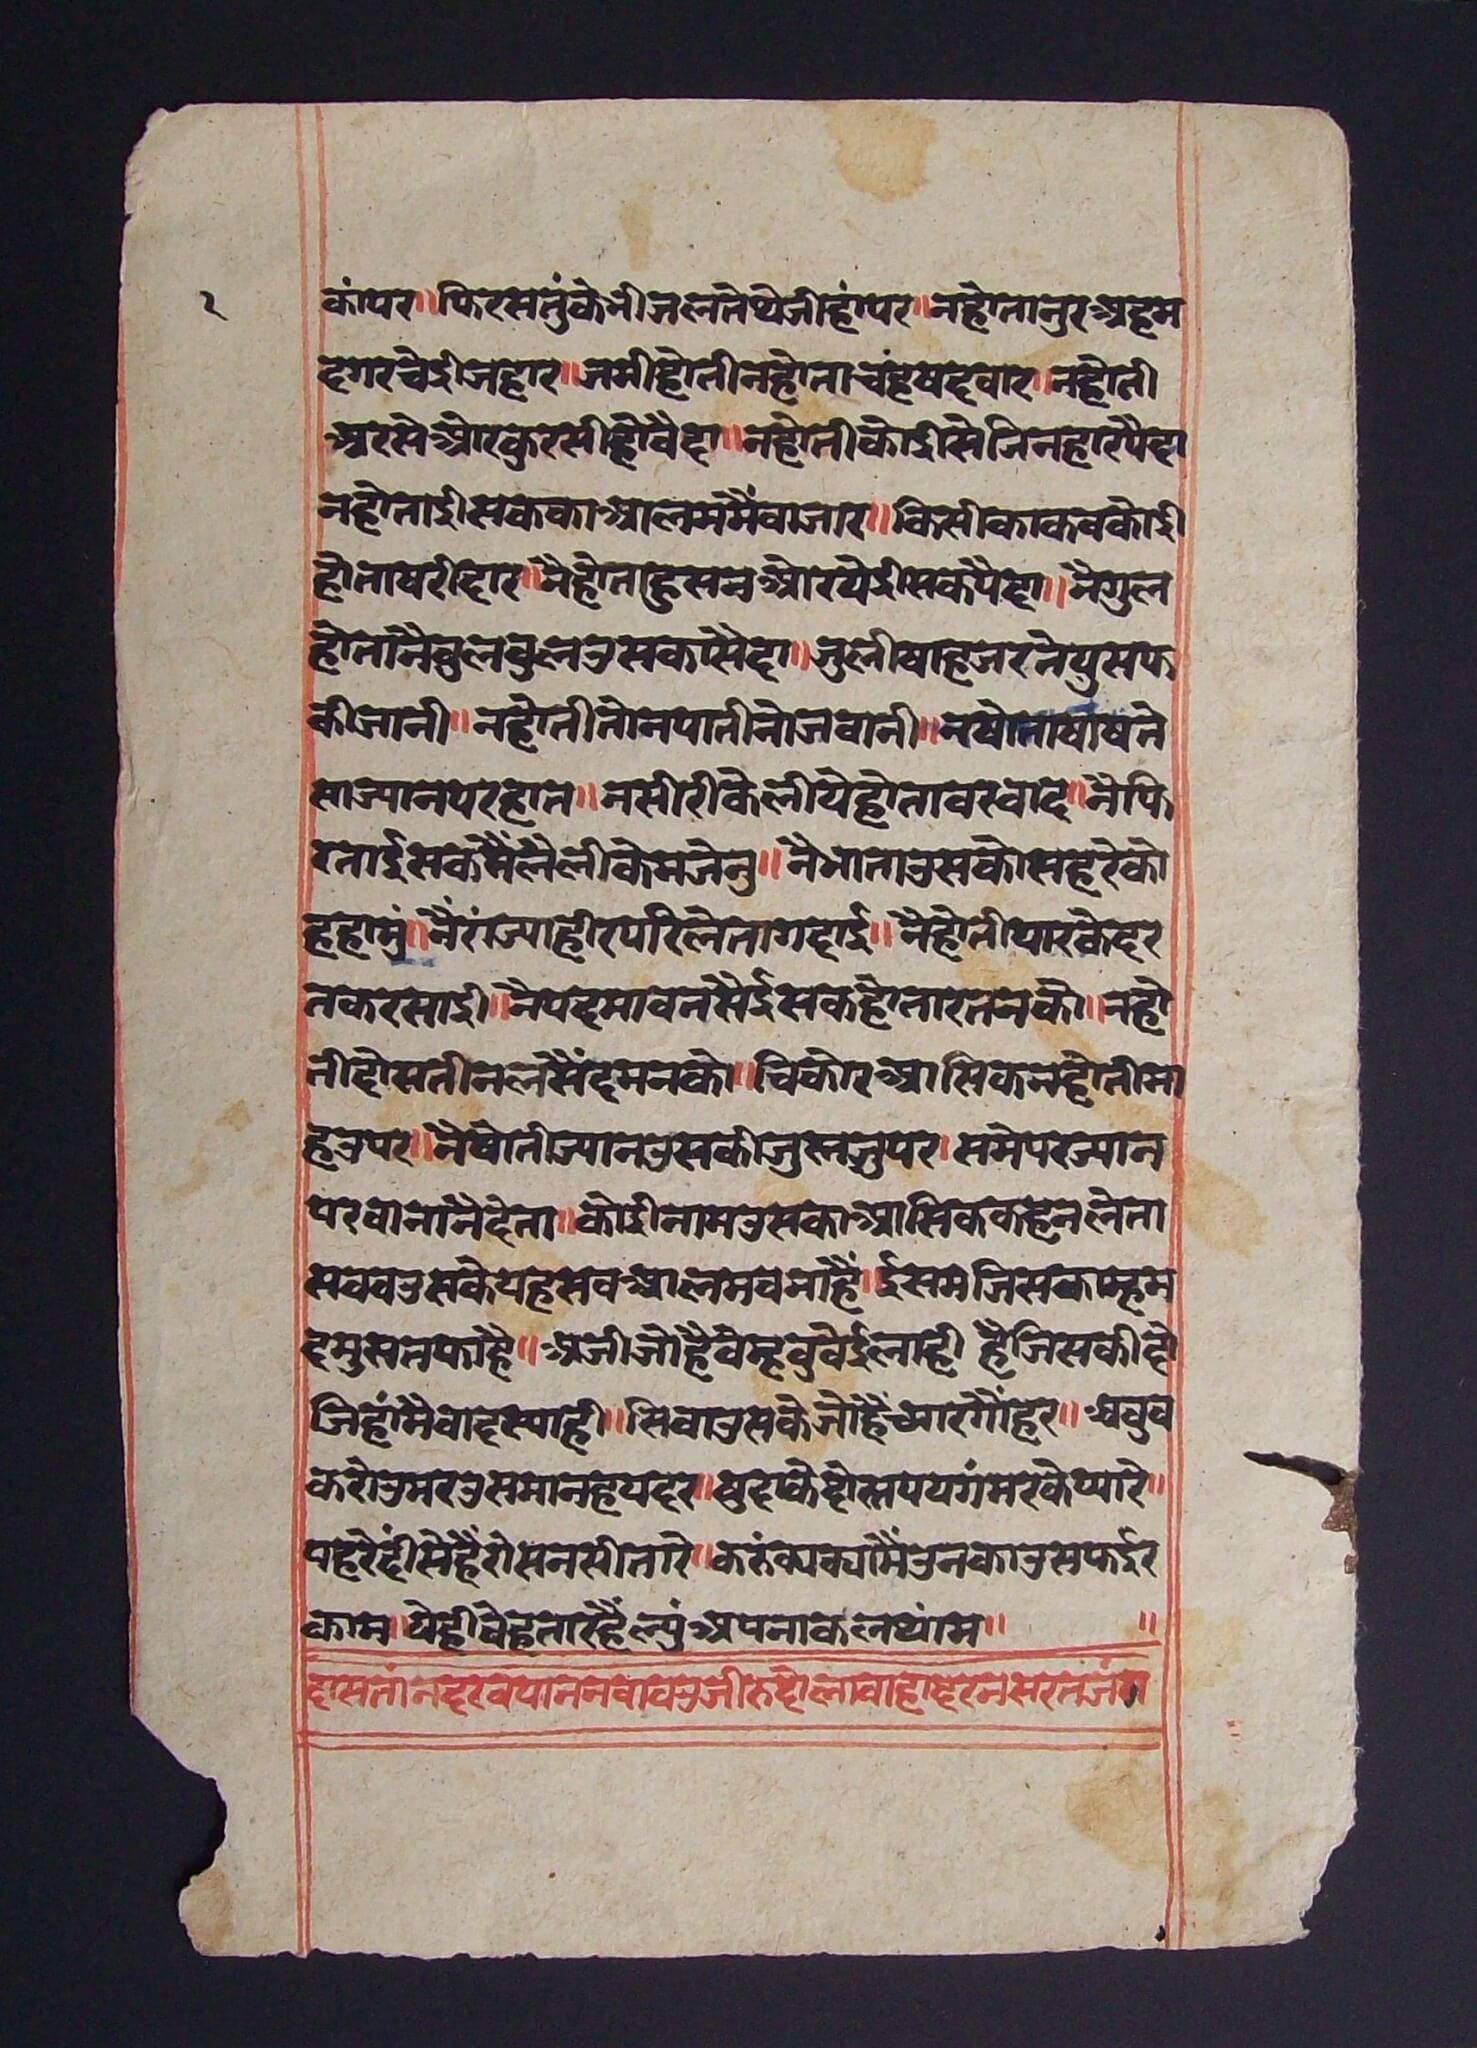 २
कांपर॥फिरसतुंकेभीजलतेथेजीहांपर॥नहोतानुरअहम
दगरचेईीजहार॥जमीहोतीनहोताचंहषदवार॥नहोती
अरसेओरकुरसीहोवैदा॥नहोतीकोईीसेजिनहारपैदा
नहोताईीसककाआलममैंबाजार॥किसीकाकबकोईी
होताषरीदार॥नैहोताहुसनओरयेईीसकपैदा॥नैगुल
होतानैबुलबुलउसकासैदा॥जुलीषाहजरनेयुसफ
कीजानी॥नहोतीतोनपातीनोजवानी॥नषोताषोषने
साज्यानपरहात॥नसीरीकेलीयेहोतावरबाद॥नैफि
रताईसकमैंलैलीकेमजेनु॥नैभाताउसकोसहरेको
हहामुं॥नैंरांज्याहीरपरिलेतागदाई॥नैहोतीयारकेदर
तकरसाईी॥नैपदमावतसैईसकहोतारतनको॥नहो
तीदोसतीनलसैंदमनको॥चिकोरआसिकनहोतीमा
हउपर॥नैषोतीज्यानउसकीजुलजुपर।समेपरज्यान
परवानांनैदेता॥कोईीनामउसकाआसिककहेनलेता
सबबउसकेयहसबआलमबनाहै।ईसमजिसकामहम
दमुसतफाहै॥अजीजोहैवेमहबुबेईलाही है‌जिसकीदो
जिहांमैबादस्याही॥सिवाउसकेजोहैंच्यारगौंहर॥अबुब
करोउमरउसमानहयदर॥षुदाकेदोस्तपयगंमरकेप्यारे॥
पहरेदींसेहैंरोसनसीतारे॥करुंक्यक्यामैंउनकाउसफईर
काम॥येहीबेहतारहैंल्युंअपनाकलथांम॥ ॥
दासतांनदरबयाननवाबउजीरुदोलाबाहादरनसरतजंग